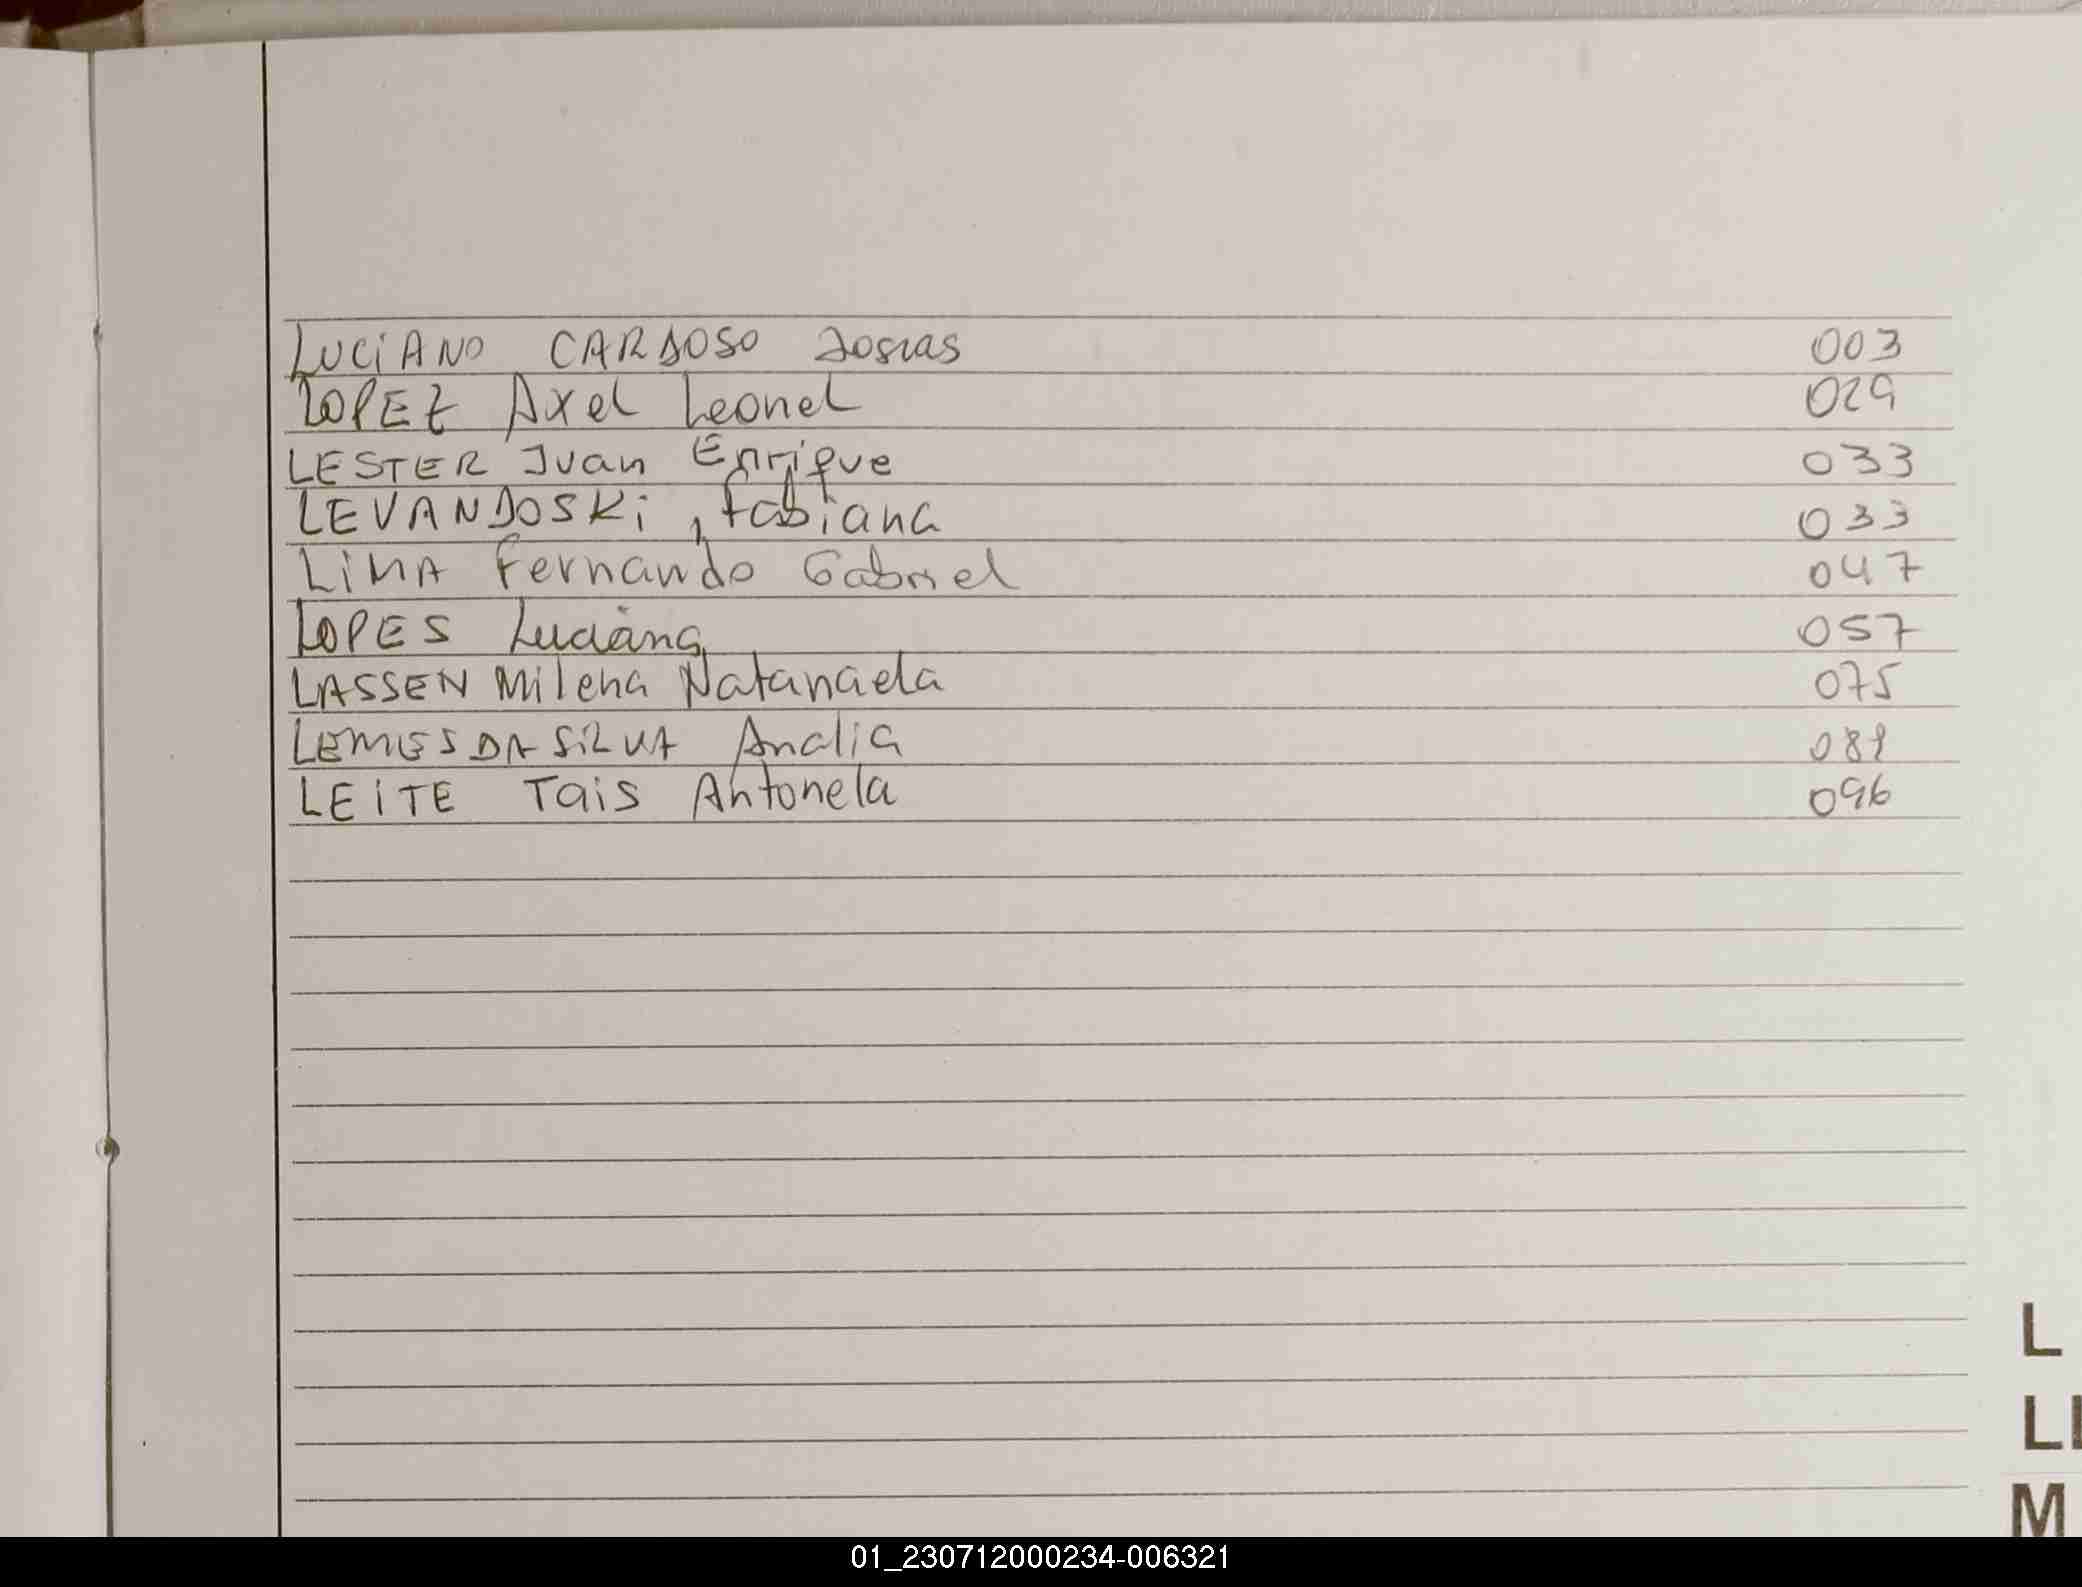 LUCIANO CARDOSO Josias 003
LOPEZ Axel Leonel 029
LESTER Juan Enrique 033
LEVANDOSKI, Fabiana 033
LIMA Fernando Gabriel 047
LOPES Luciana 057
LASSEN Milena Natanaela 075
LEMES DA SILVA Analia 089
LEITE Tais Antonela 096
L
LL
M
01_230712000234-006321